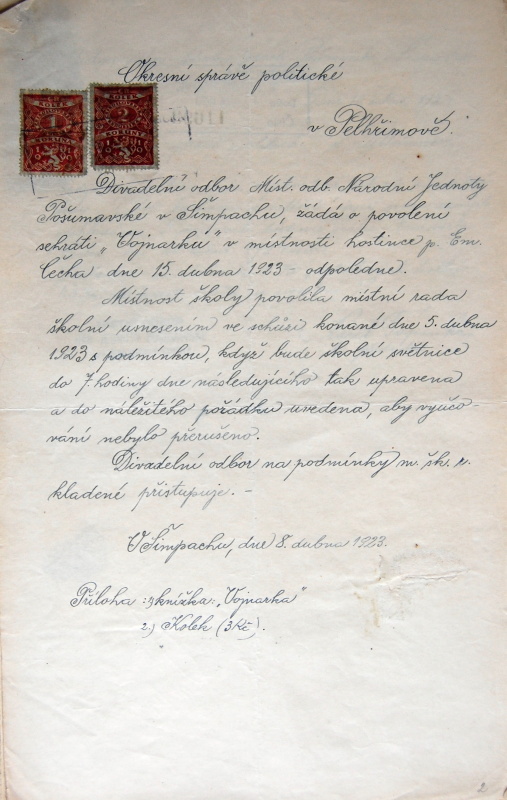 Okresní správě politické
KOLEK
1
KORUNA
KOLEK
2
KORUNY
v Pelhřimově.
Divadelní odbor Míst. odb. Národní Jednoty
Pošumavské v Šimpachu, žádá o povolení
sehráti „Vojnarku" v místnosti hostince p. Em.
Čecha dne 15. dubna 1923 - odpoledne.
Místnost školy povolila místní rada
školní usnesením ve schůzi konané dne 5. dubna
1923 s podmínkou, když bude školní světnice
do 7. hodiny dne následujícího tak upravena
a do náležitého pořádku uvedena, aby vyučo-
vání nebylo přerušeno.
Divadelní odbor na podmínky m. šk. r.
kladené přistupuje. -
V Šimpachu, dne 8. dubna 1923.
Příloha: 1) knížka: „Vojnarka"
2.) Kolek (3 Kč).
2